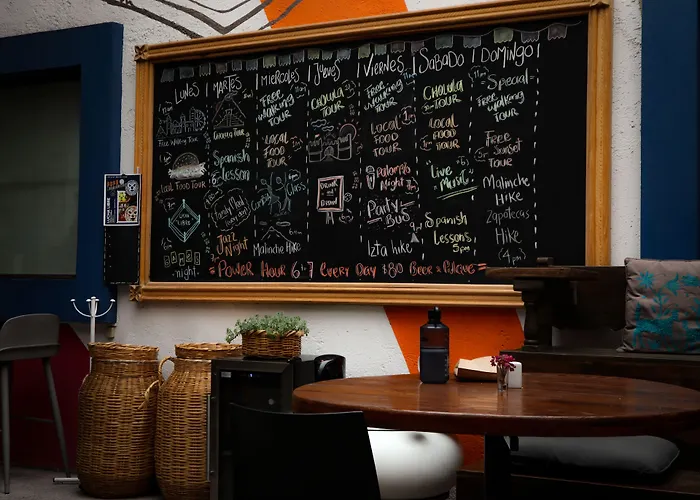 LUNES
MARTES
MIERCOLES
JUEVES
VIERNES
SABADO
DOMINGO
FREE WALKING TOUR
LOCAL FOOD TOUR
CHOLULA TOUR
Spanish Lesson
JAZZ Night
FREE WALKING TOUR
LOCAL FOOD TOUR
Class
MALINCHE HIKE
CHOLULA TOUR
DRINK and DRAW!
FREE walking TOUR
LOCAL FOOD TOUR
Palomas Night
PARTY BUS
Izta hike
CHOLULA TOUR
LOCAL FOOD TOUR
"Live Music"
Spanish Lessons
5pm
Special
FREE walking TOUR
FREE Sunset TOUR
Malinche Hike
Zapotecas Hike
(4pm)
-night
POWER HOUR 6-7 EVERY DAY $80 BEER & PULQUE